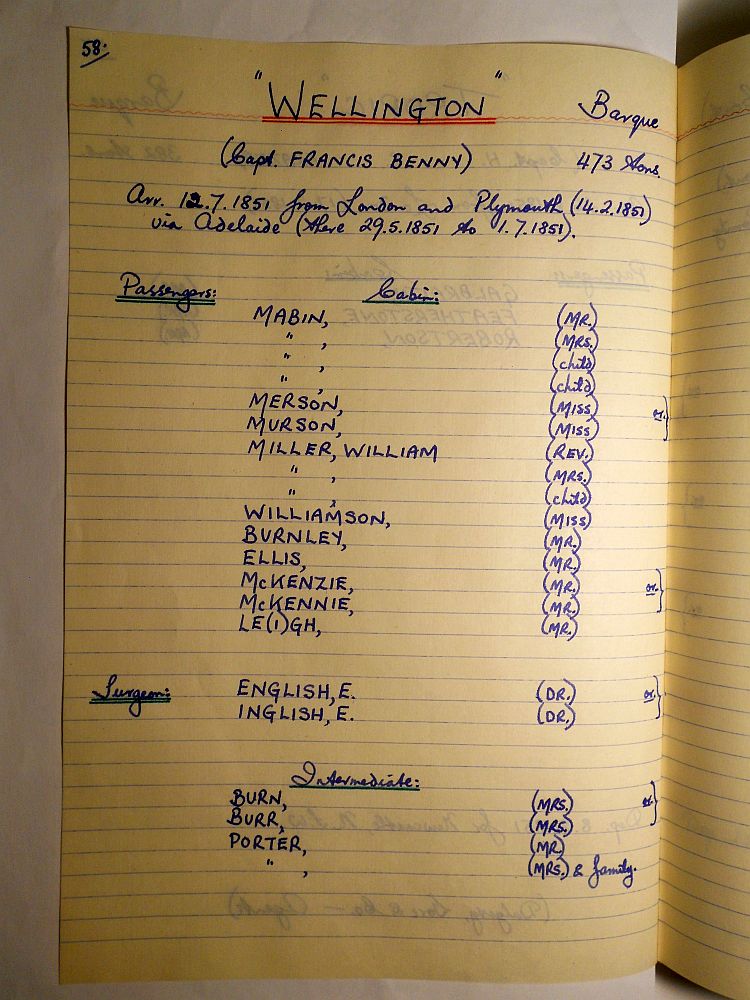 58.
"WELLINGTON" Barque
(Capt. FRANCIS BENNY) 473 tons.
Arr. 12.7.1851 from London and Plymouth (14.2.1851)
via Adelaide (there 29.5.1851 to 1.7.1851).
Passengers: Cabin:
MABIN, (MR.)
" , (MRS.)
" , (child)
" , (child)
MERSON, (MISS) or. }
MURSON, (MISS)
MILLER, WILLIAM (REV.)
" , (MRS.)
" , (child)
WILLIAMSON, (MISS)
BURNLEY, (MR.)
ELLIS, (MR.)
McKENZIE, (MR.) or. }
McKENNIE, (MR.)
LE(I)GH, (MR.)
Surgeon: ENGLISH, E. (DR.) or. }
INGLISH, E. (DR.)
Intermediate:
BURN, (MRS.) or. }
BURR, (MRS.)
PORTER, (MR.)
" , (MRS.) & family.